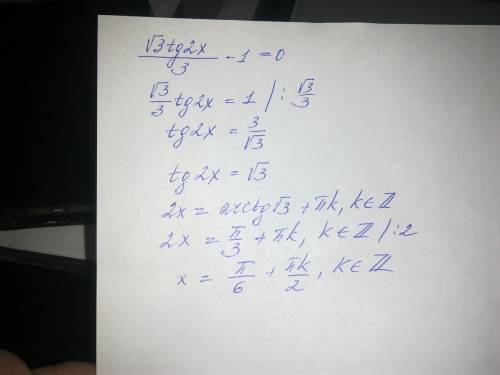 √3tg2x/3 - 1 = 0
√3/3 tg2x = 1 /: √3/3
tg2x = 3/√3
tg2x = √3
2x = arctg√3 + πk, k∈ℤ
2x = π/3 + πk, k∈ℤ /:2
x = π/6 + πk/2, k∈ℤ